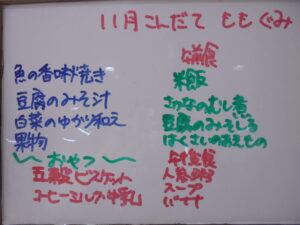 11月こんだて ももぐみ
魚の香味焼き
豆腐のみそ汁
白菜のゆかり和え
果物
おやつ
五穀ビスケット
コーヒーミルク(牛乳)
米飯
さかなのむし煮
豆腐のみそしる
はくさいのあえもの
人参粥
スープ
バナナ